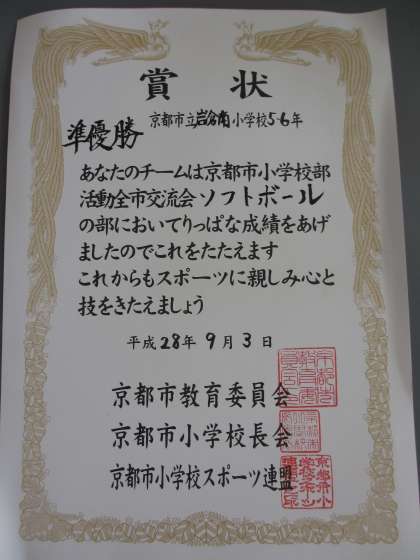 賞状
京都市立岩倉南小学校5・6年
準優勝
あなたのチームは京都市小学校部
活動全市交流会ソフトボール
の部においてりっぱな成績をあげ
ましたのでこれをたたえます
これからもスポーツに親しみ心と
技をきたえましょう
平成28年9月3日
京都市教育委員会
京都市小学校長会
京都市小学校スポーツ連盟